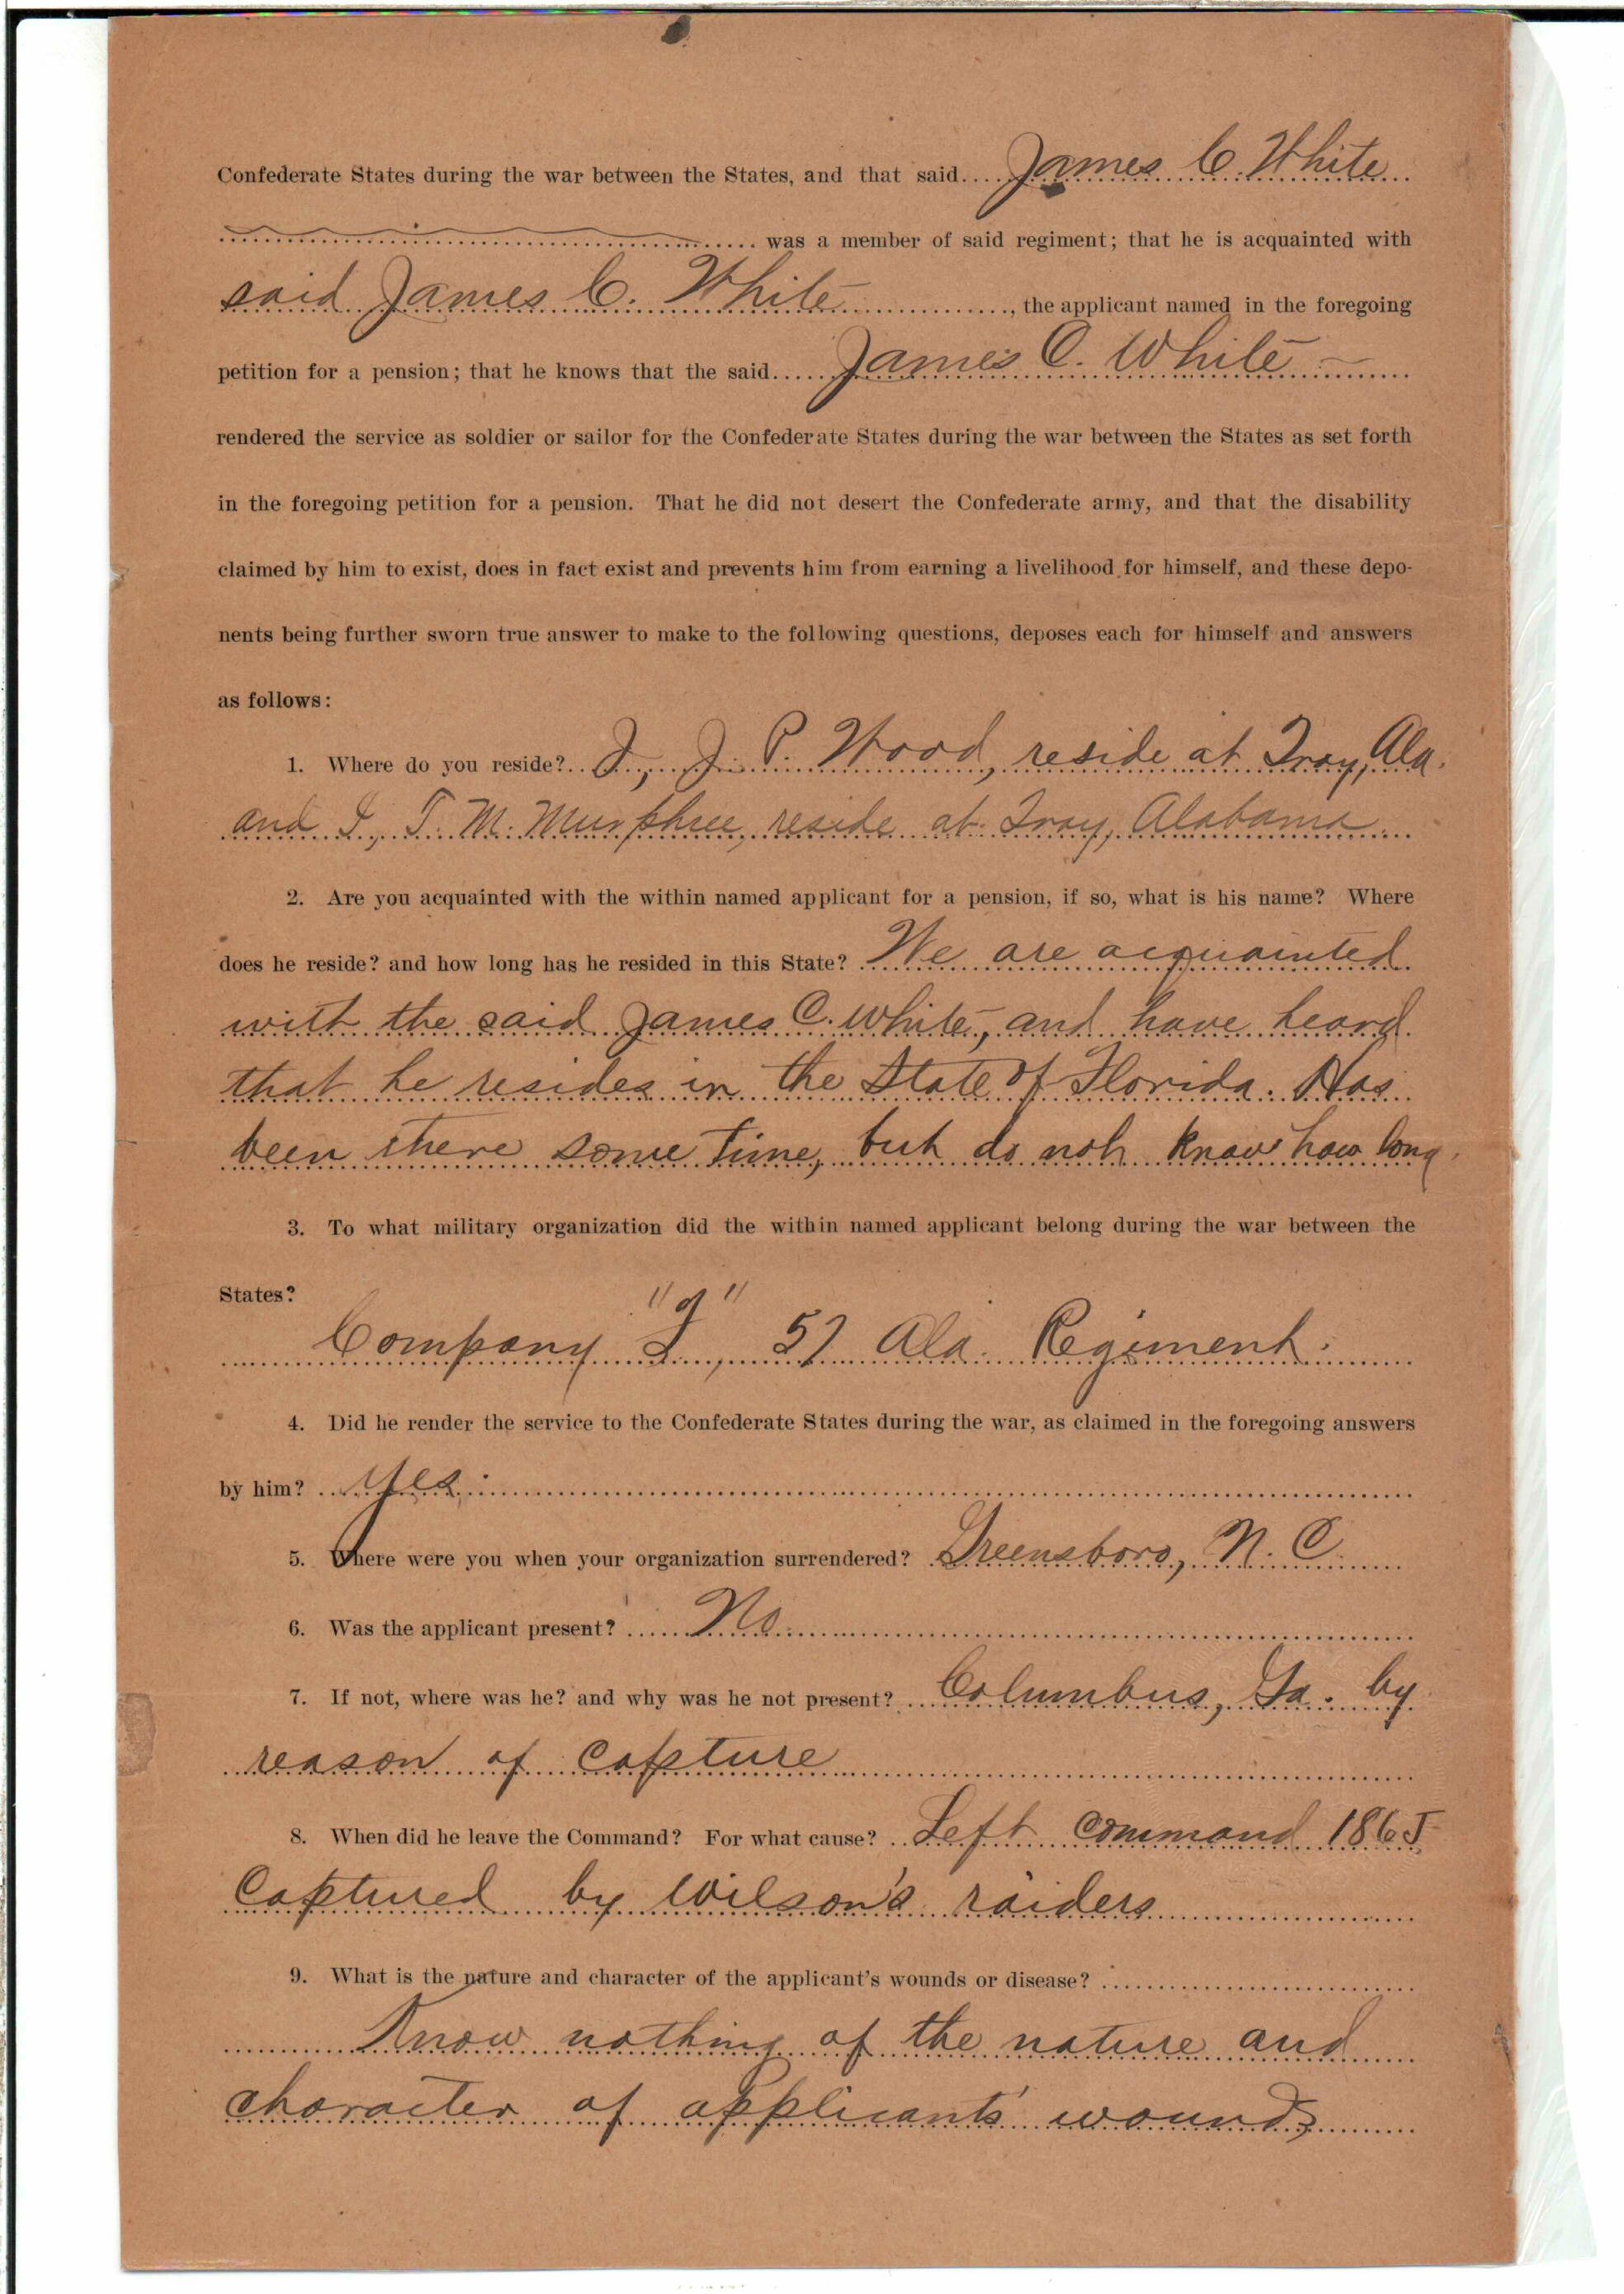 Confederate States during the war between the States, and that said.... James C. White
was a member of said regiment; that he is acquainted with
said James C. White, the applicant named in the foregoing
petition for a pension; that he knows that the said..... James C. White
rendered the service as soldier or sailor for the Confederate States during the war between the States as set forth
in the foregoing petition for a pension. That he did not desert the Confederate army, and that the disability
claimed by him to exist, does in fact exist and prevents him from earning a livelihood for himself, and these depo-
nents being further sworn true answer to make to the following questions, deposes each for himself and answers
as follows:
1. Where do you reside? I, J. P. Wood, reside at Troy, Ala.
and I, T. M. Murphree, reside at Troy, Alabama
2. Are you acquainted with the within named applicant for a pension, if so, what is his name? Where
does he reside? and how long has he resided in this State? We are acquainted
with the said James C. White, and have heard
that he resides in the State of Florida. Has
been there some time, but do not know how long.
3. To what military organization did the within named applicant belong during the war between the
States?
Company , 57 Ala. Regiment.
4. Did he render the service to the Confederate States during the war, as claimed in the foregoing answers
by him? Yes.
5. Where were you when your organization surrendered? Greensboro, N. C.
6. Was the applicant present? No
7. If not, where was he? and why was he not present? Columbus, Ga. by
reason of capture
8. When did he leave the Command? For what cause? Left command 1865
Captured by Wilson's raiders
9. What is the nature and character of the applicant's wounds or disease?
Know nothing of the nature and
character of applicant's wounds